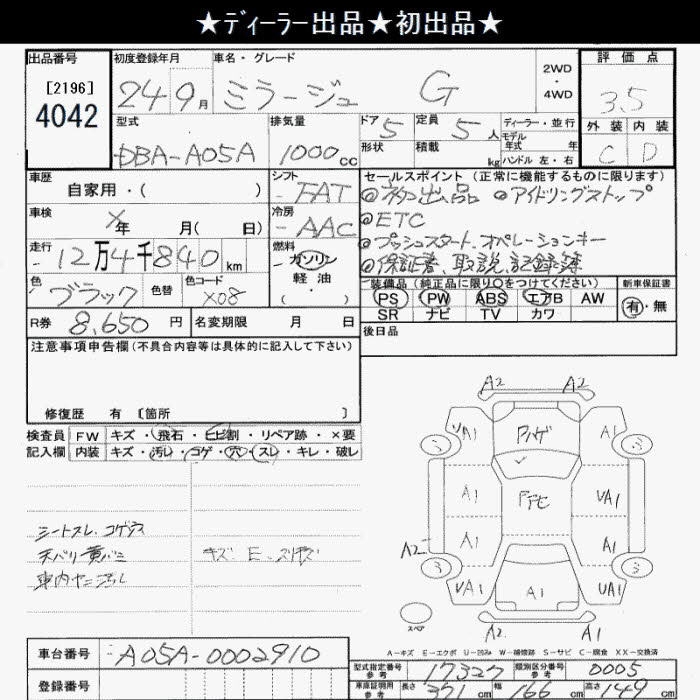 ★ディーラー出品★初出品★
出品番号
[2196]
4042
初度登録年月
24 9月
車名・グレード
ミラージュ G
2WD
・
4WD
評価点
3.5
外装 内装
C D
型式
DBA-A05A
排気量
1000cc
ドア 5
形状
定員 5人
積載 kg
ディーラー・並行
モデル
年式 年
ハンドル 左・右
車歴
自家用・( )
シフト
FAT
車検
X年 月( 日)
冷房
AAC
走行
12万4千840km
燃料
ガソリン
軽油
( ・ )
色
ブラック
色替
色コード
X08
R券 8,650円
名変期限 月 日
セールスポイント(正常に機能するものに限ります)
◎初出品 ◎アイドリングストップ
◎ETC
◎プッシュスタート、オペレーションキー
◎保証書、取説、記録簿
装備品(純正品に限り○をつけてください)
PS PW ABS エアB AW
SR ナビ TV カワ
新車保証書
有・無
後日品
注意事項申告欄(不具合内容等は具体的に記入して下さい)
修復歴 有 [箇所 ]
検査員 FW キズ・飛石・ヒビ割・リペア跡・×要
記入欄 内装 キズ・汚レ・コゲ・穴・スレ・キレ・破レ
シートスレ、コゲ穴
天バリ黄バミ
車内ヤニ汚レ
キズ E・スリキズ
A2 A2
A1 A1
A1 UA1
A2 A1 A1
UA1 A1 UA1
A2 A2
スペア
A-キズ E-エクボ U-凹ミ W-補修跡 S-サビ C-腐食 XX-交換済
車台番号 A05A-0002910
登録番号
型式指定番号
参考
17327
類別区分番号
参考
0005
車庫証明用
参考
長さ 371cm 幅 166cm 高さ 149cm